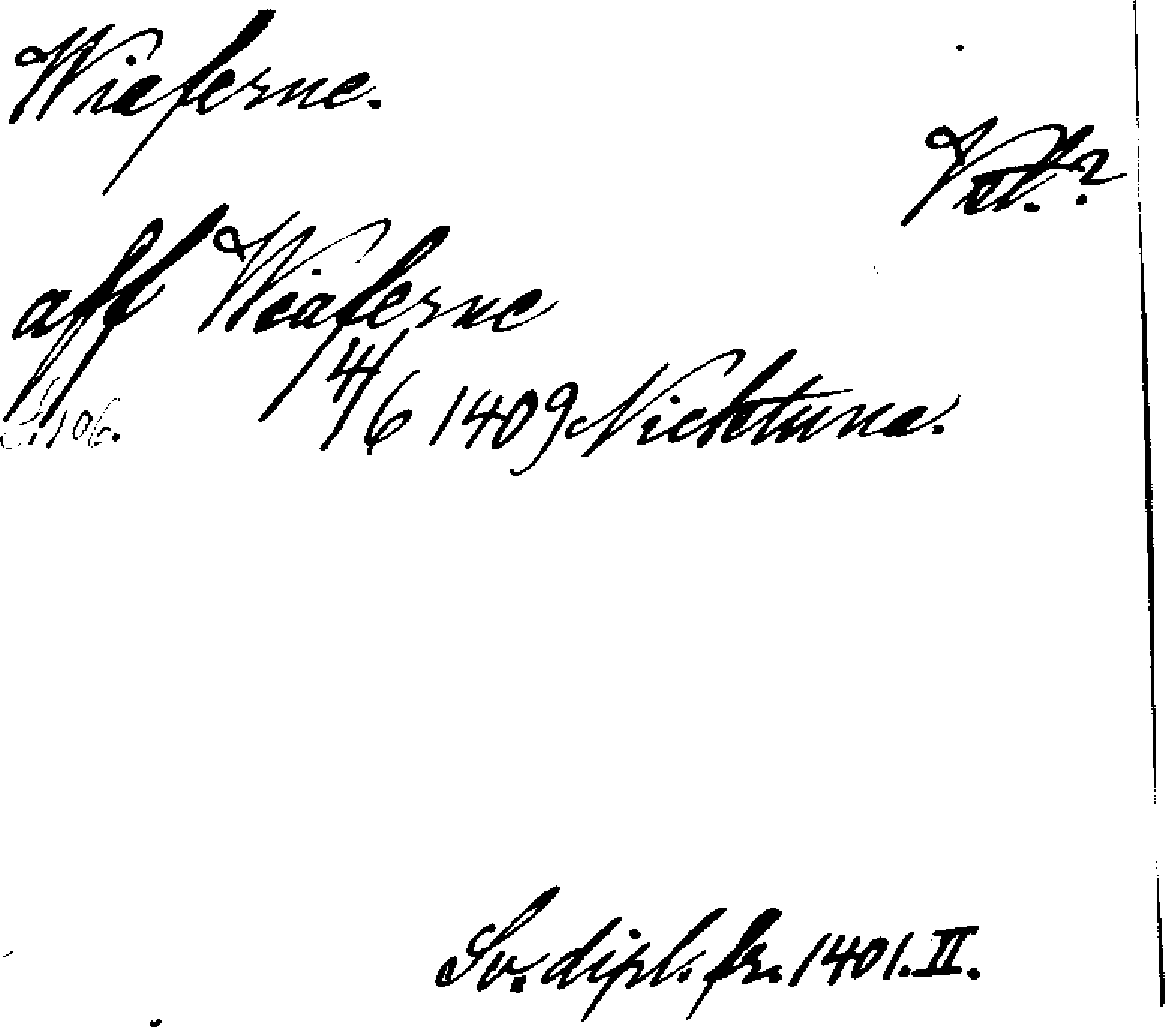 Wiaferne.
Vstl.?
aff Wiaferne
S. 106. 14/6 1409 Nichtuna.
Sv. dipl. fr. 1401. II.